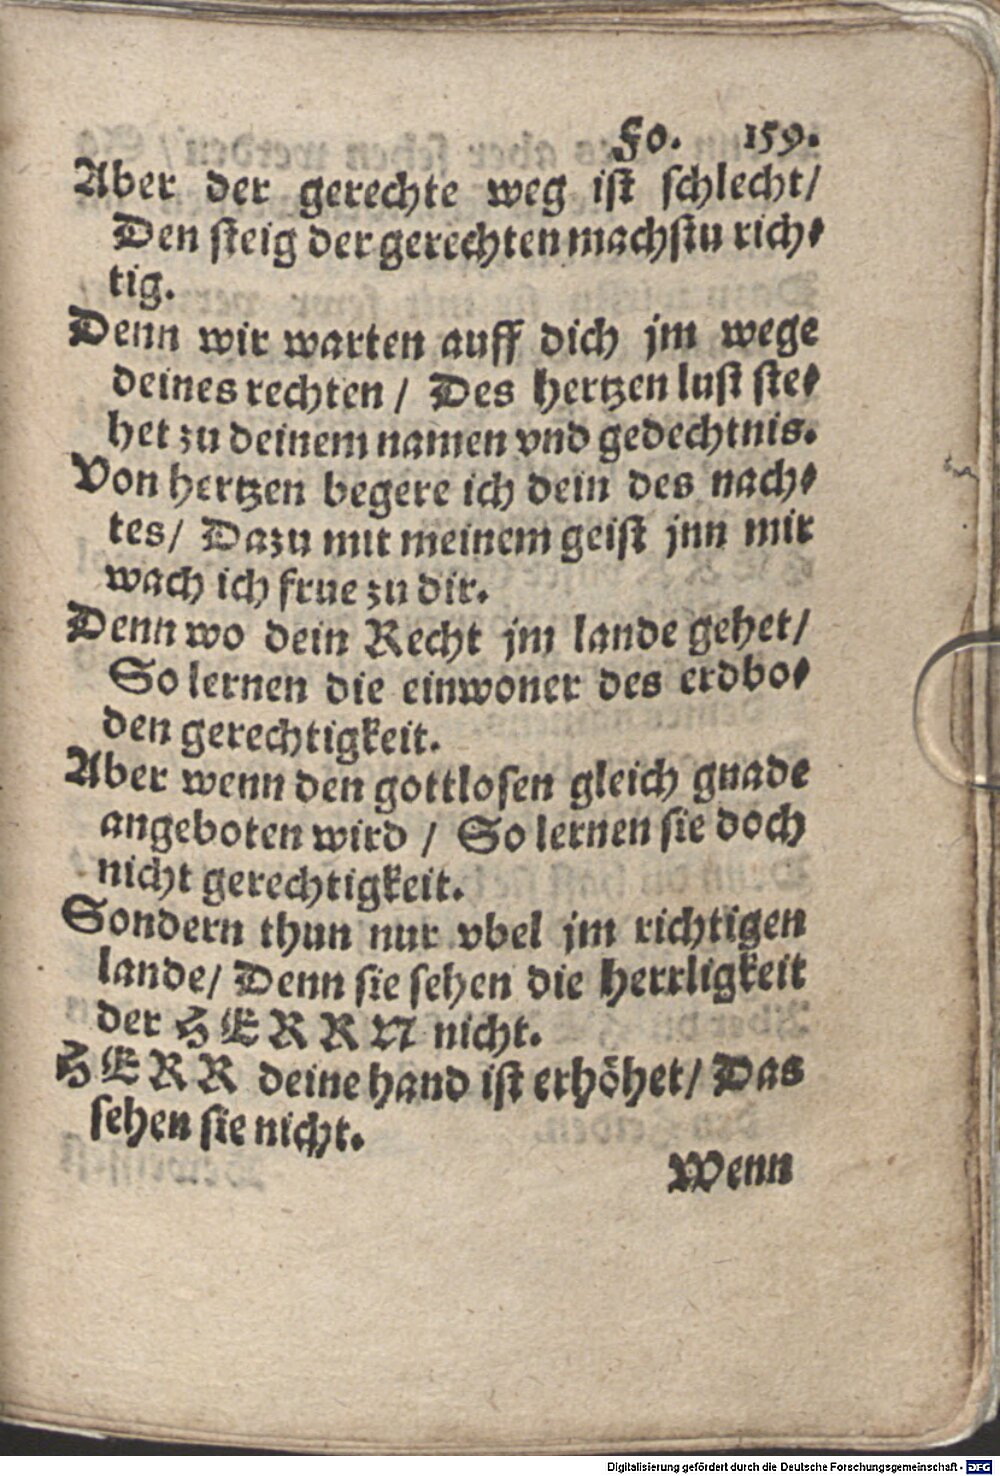 Fo. 159.
Aber der gerechte weg ist schlecht/
Den steig der gerechten machstu rich⸗
tig.
Denn wir warten auff dich jm wege
deines rechten / Des hertzen lust ste⸗
het zu deinem namen vnd gedechtnis.
Von hertzen begere ich dein des nach⸗
tes/ Dazu mit meinem geist jnn mir
wach ich frue zu dir.
Denn wo dein Recht jm lande gehet/
So lernen die einwoner des erdbo⸗
den gerechtigkeit.
Aber wenn den gottlosen gleich gnade
angeboten wird / So lernen sie doch
nicht gerechtigkeit.
Sondern thun nur vbel jm richtigen
lande/ Denn sie sehen die herrligkeit
der HERRN nicht.
HERR deine hand ist erhöhet/ Das
sehen sie nicht.
Wenn
Digitalisierung gefördert durch die Deutsche Forschungsgemeinschaft - DFG